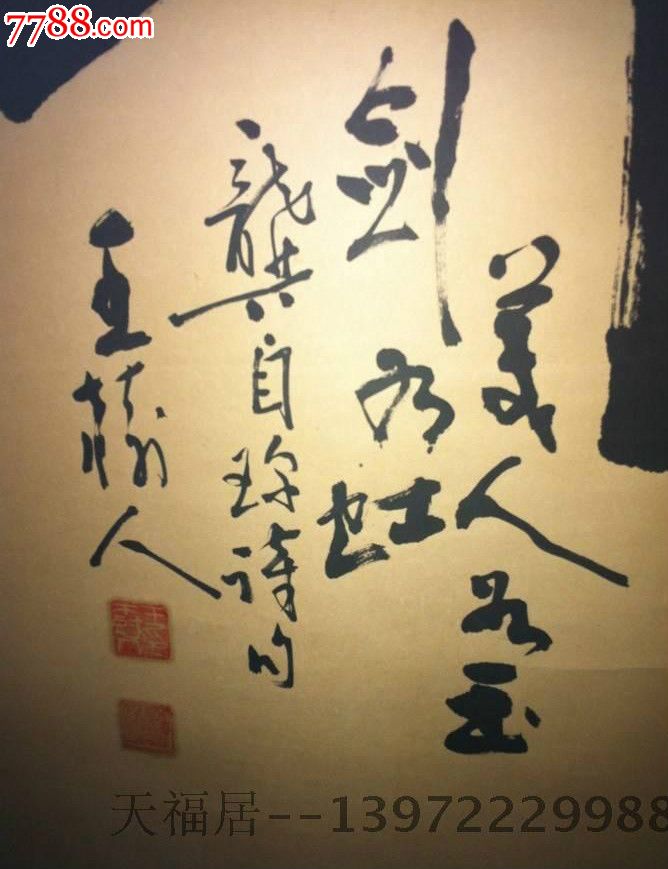 7788.com
美人如玉
劍如虹
龔自珍詩句
王樹人
天福居--13972229988